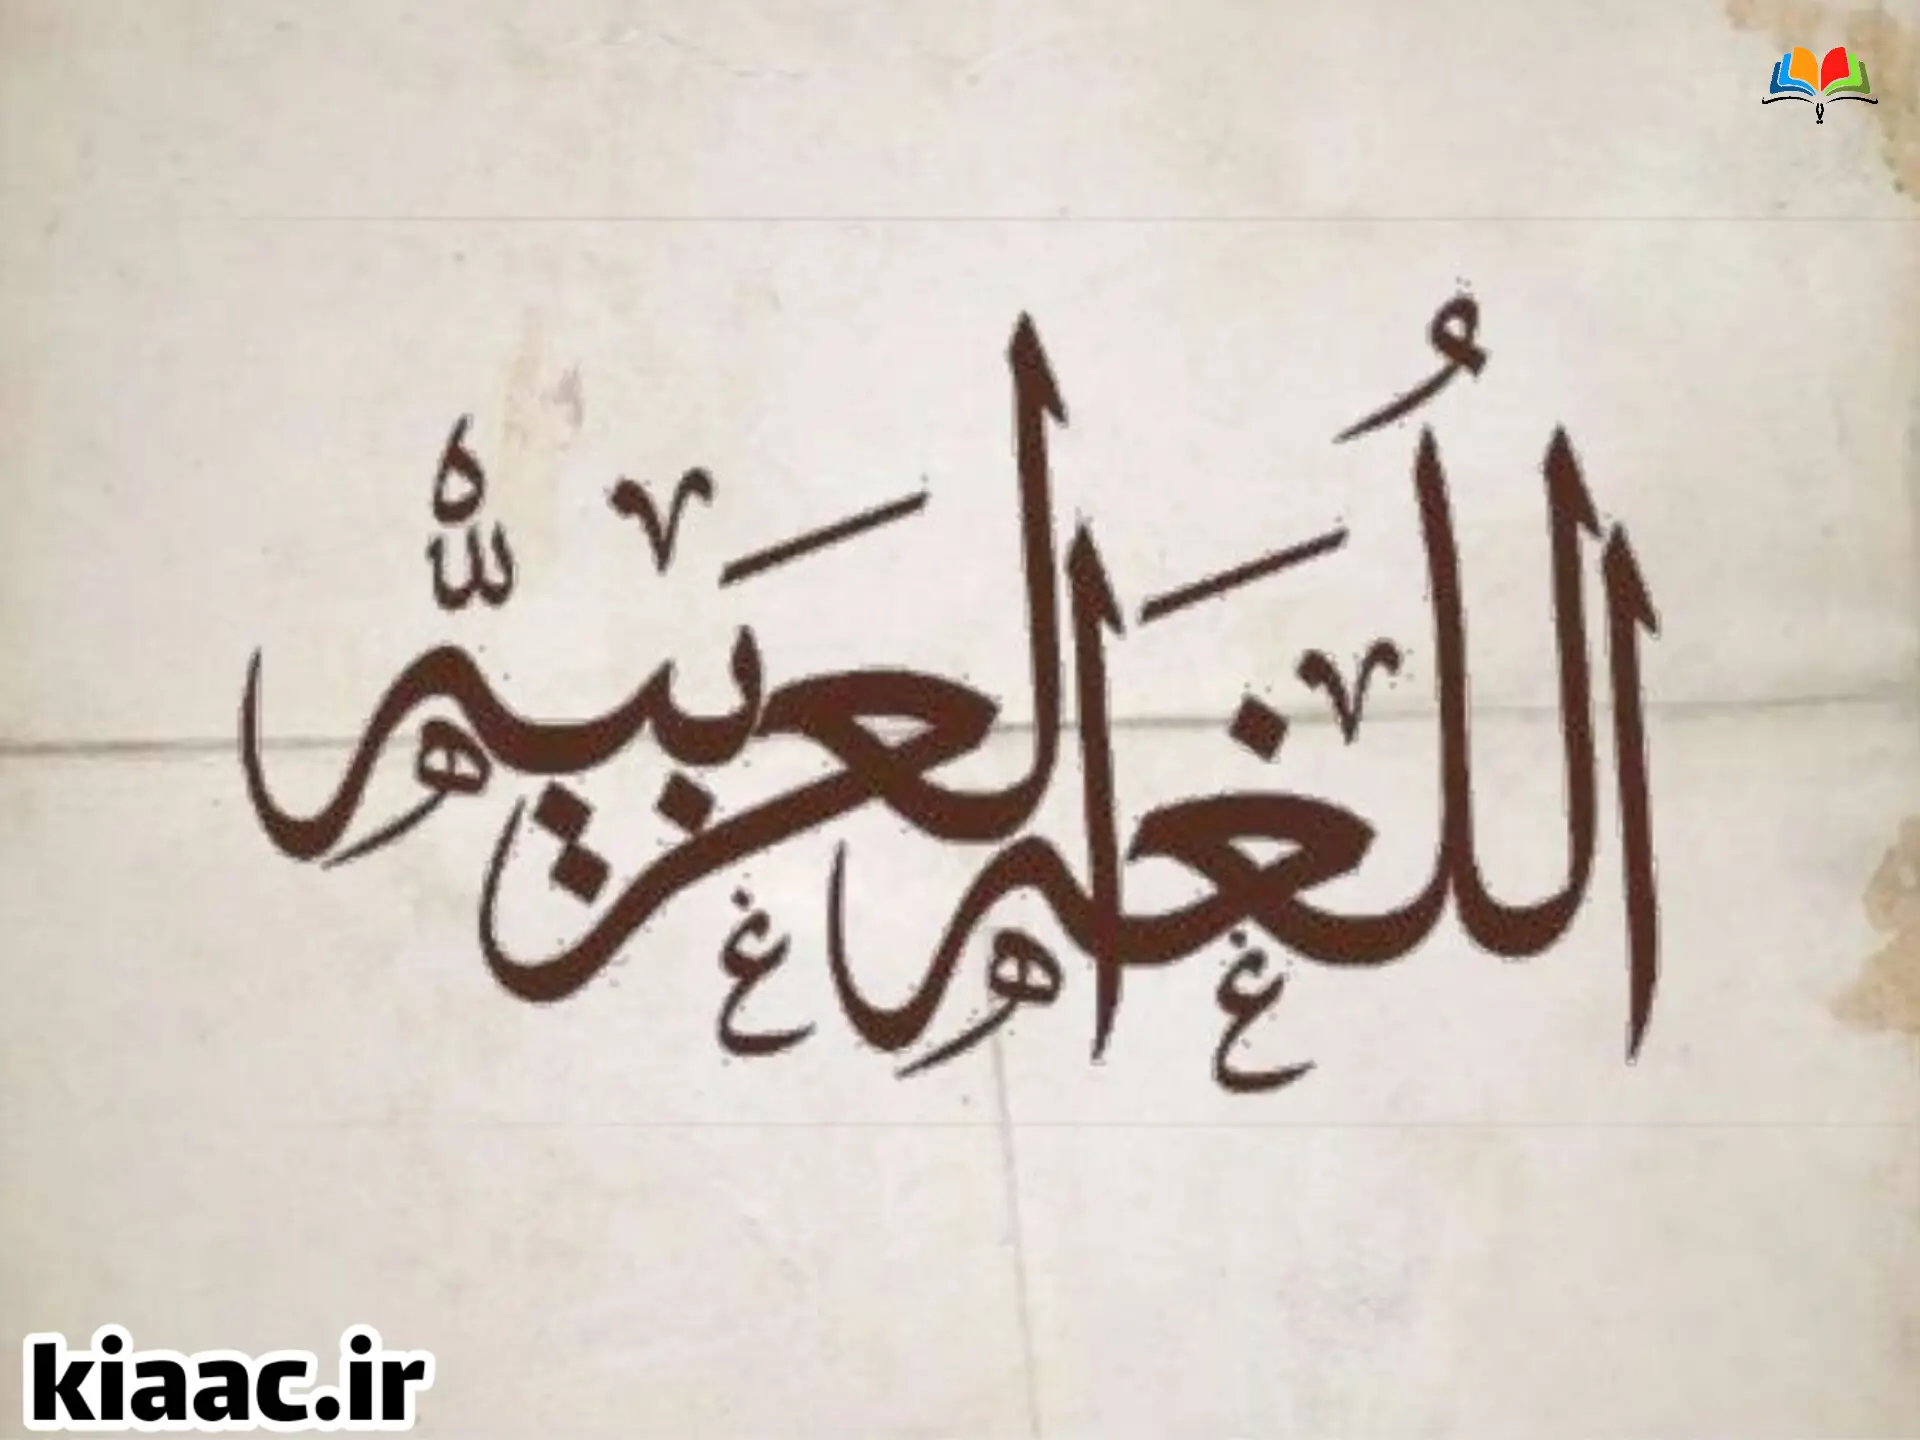 اللُغَه العَربيه
kiaac.ir